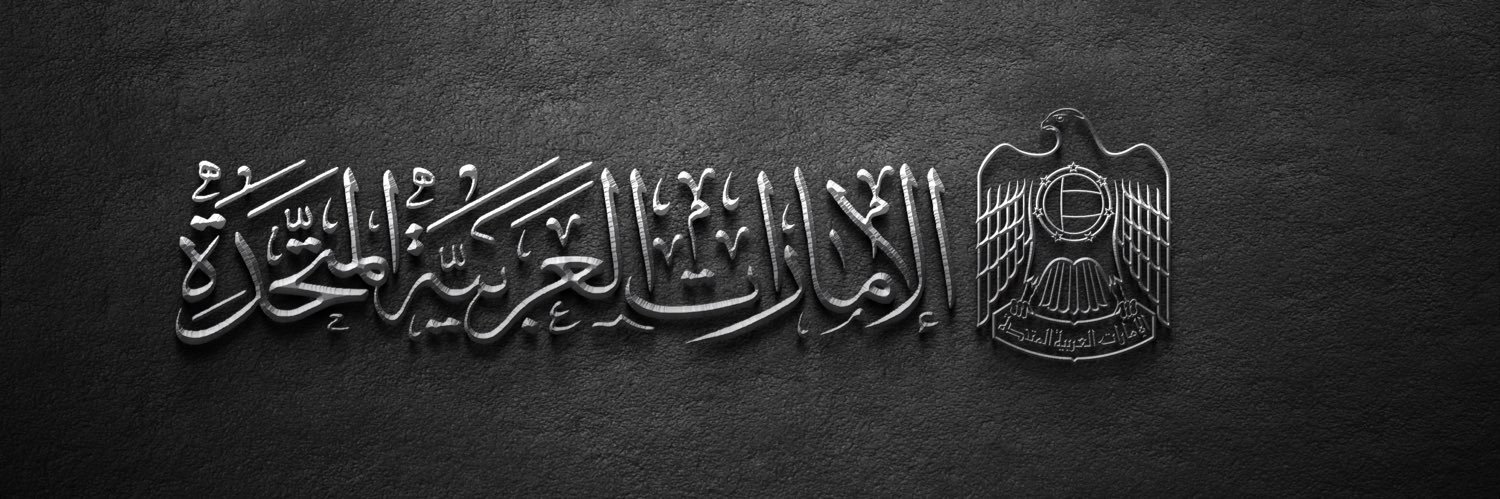 الإمارات العربيّة المتّحدة
الإمارات العربية المتحدة